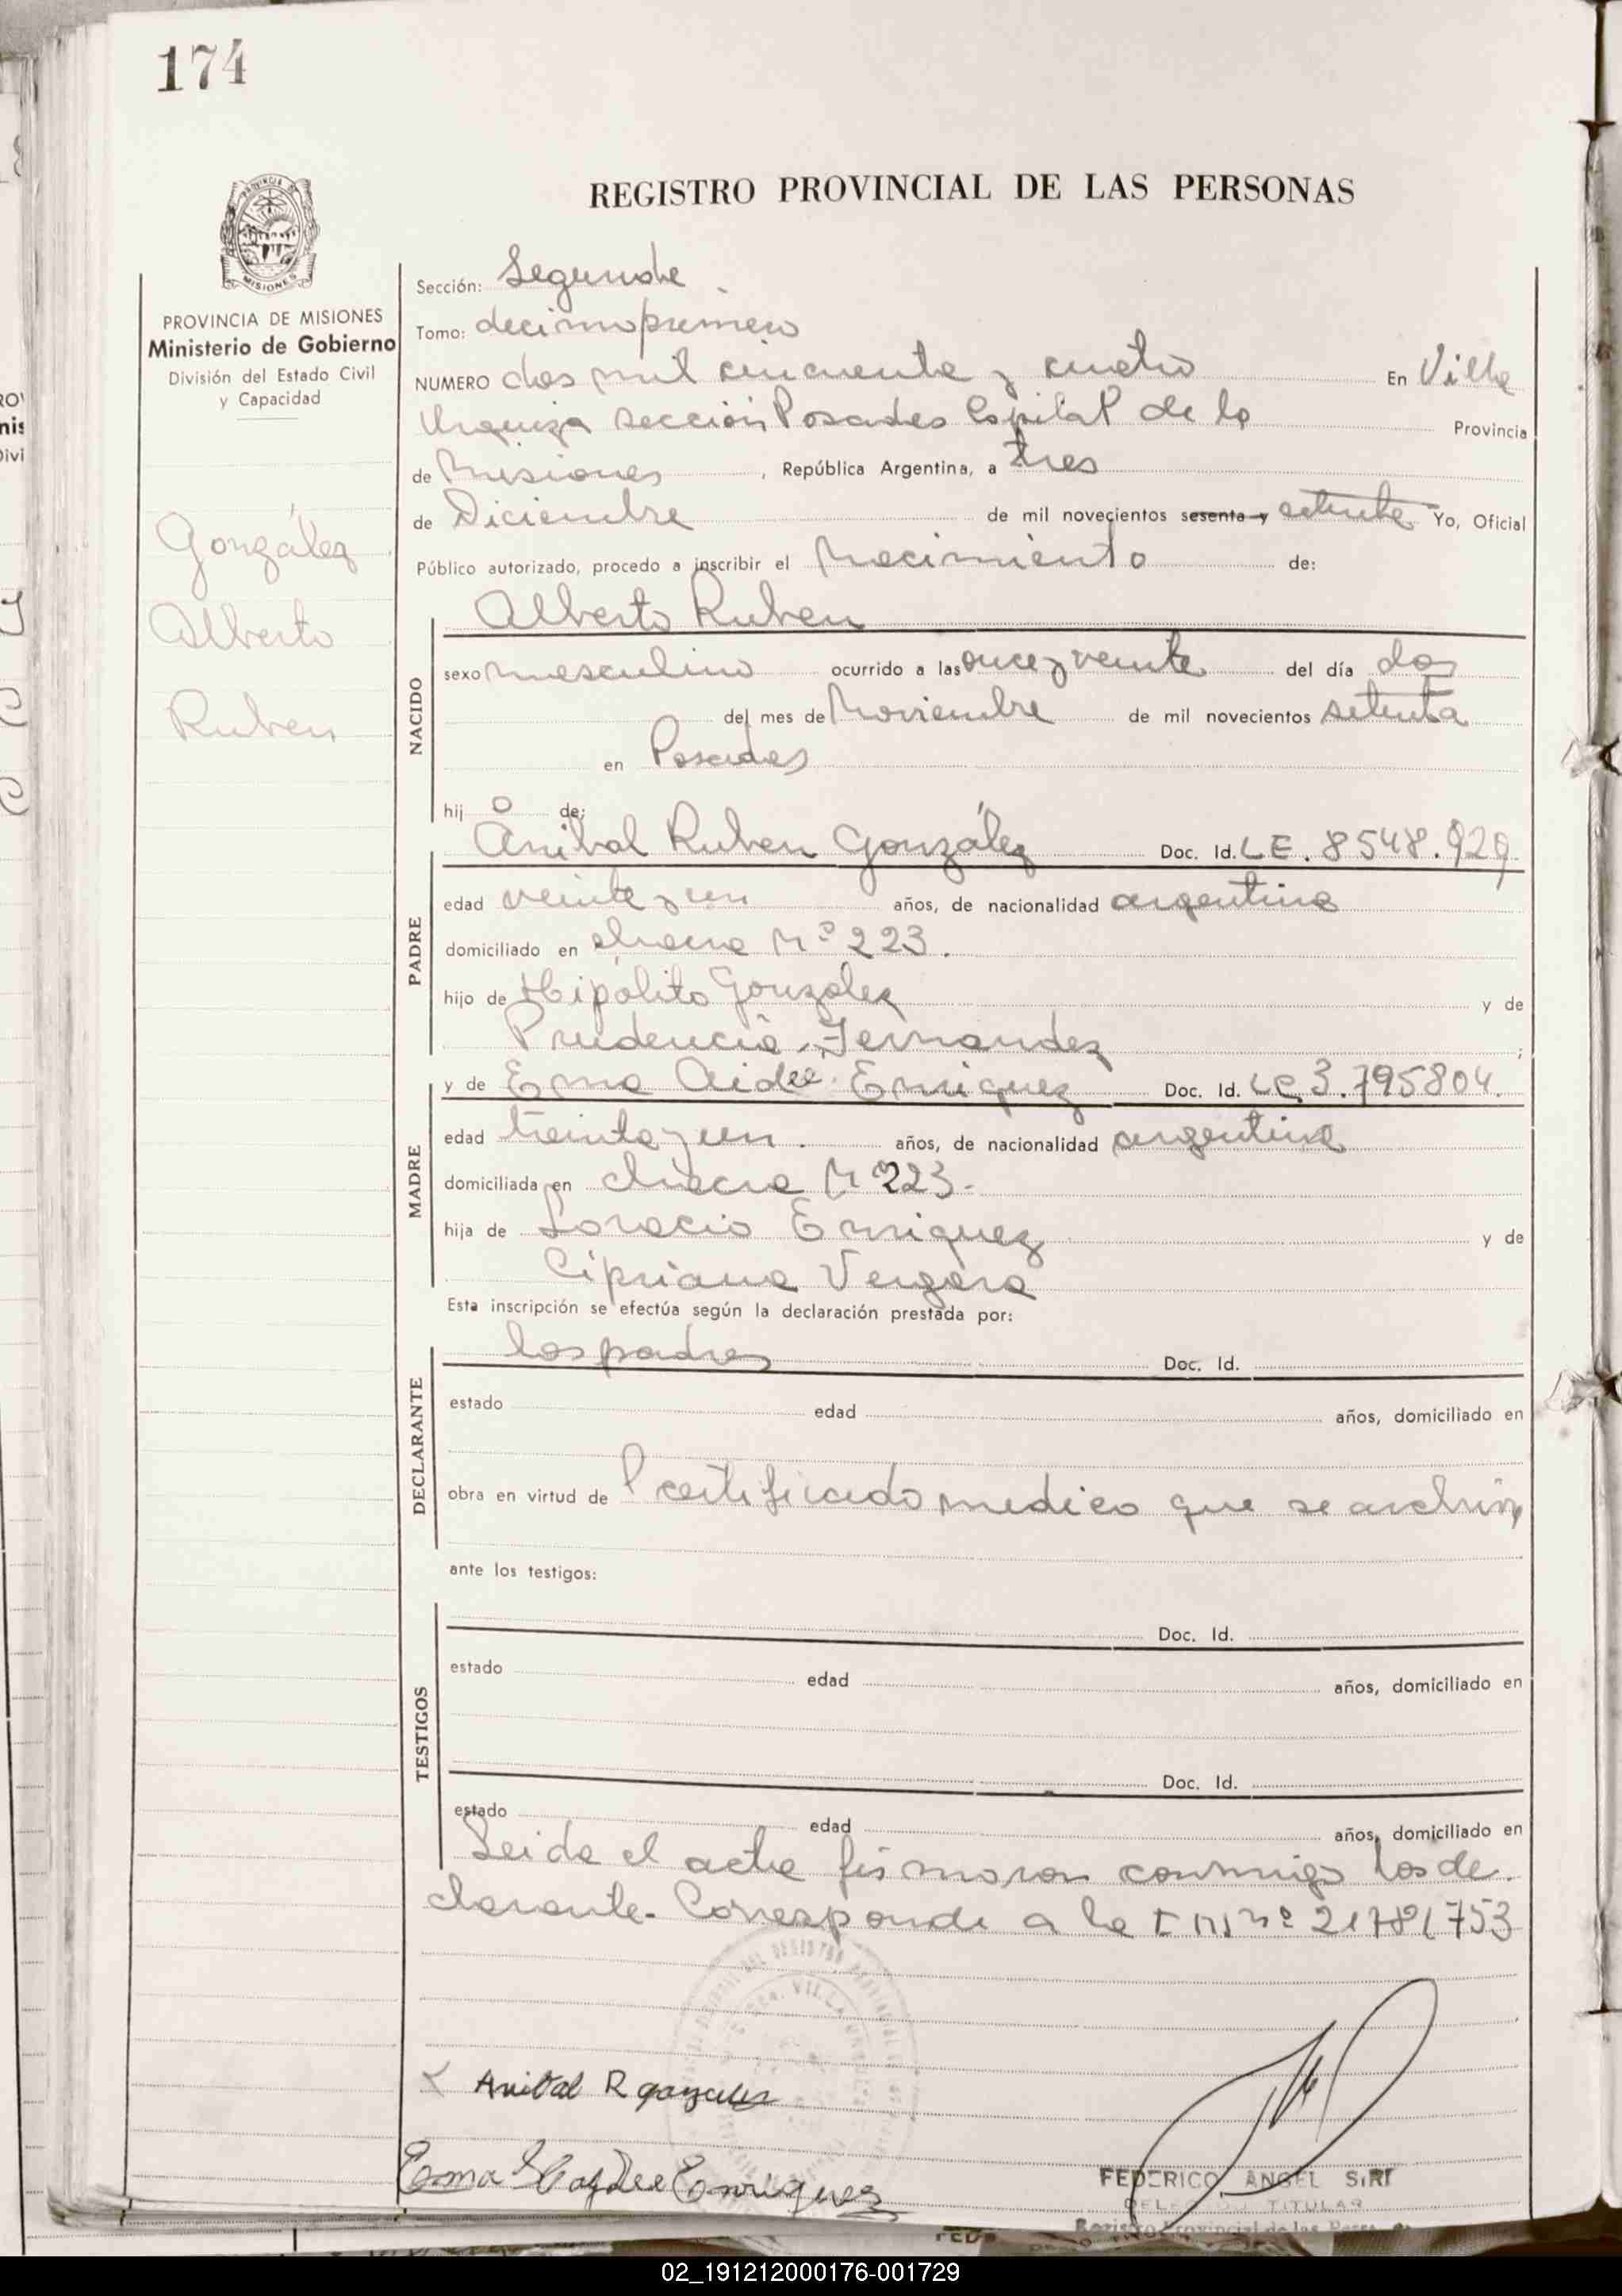 174
REGISTRO PROVINCIAL DE LAS PERSONAS
PROVINCIA DE MISIONES
Ministerio de Gobierno
División del Estado Civil
y Capacidad
González
Alberto
Ruben
Sección: Segunda
Tomo: decimoprimero
NUMERO dos mil cincuenta y cuatro En Villa
Urquiza sección Posadas Capital de la Provincia
de Misiones, República Argentina, a tres
de Diciembre de mil novecientos sesenta y setenta Yo, Oficial
Público autorizado, procedo a inscribir el Nacimiento de:
NACIDO
Alberto Ruben
sexo masculino ocurrido a las once y veinte del día dos
del mes de Noviembre de mil novecientos setenta
en Posadas
hij o de:
PADRE
Anibal Ruben González Doc. Id. LE. 8548.929
edad veinte y un años, de nacionalidad argentina
domiciliado en chacra Nº 223.
hijo de Hipólito Gonzalez y de
Prudencia Fernandez;
MADRE
y de Erma Aidee Enriquez Doc. Id. LC 3.795804.
edad treinta y un. años, de nacionalidad argentina
domiciliada en chacra Nº 223.
hija de Loracio Enriquez y de
Cipriana Vergara
Esta inscripción se efectúa según la declaración prestada por:
DECLARANTE
los padres Doc. Id.
estado edad años, domiciliado en
obra en virtud de l certificado medico que se archiva
ante los testigos:
TESTIGOS
Doc. Id.
estado edad años, domiciliado en
Doc. Id.
estado edad años, domiciliado en
Leida el acta firmaron conmigo los de
clarante. Corresponde a la nº 21781753
Anibal R gonzalez
Erma Enriquez
FEDERICO ANGEL SIRI
TITULAR
Registro Provincial de las Pers
02_191212000176-001729